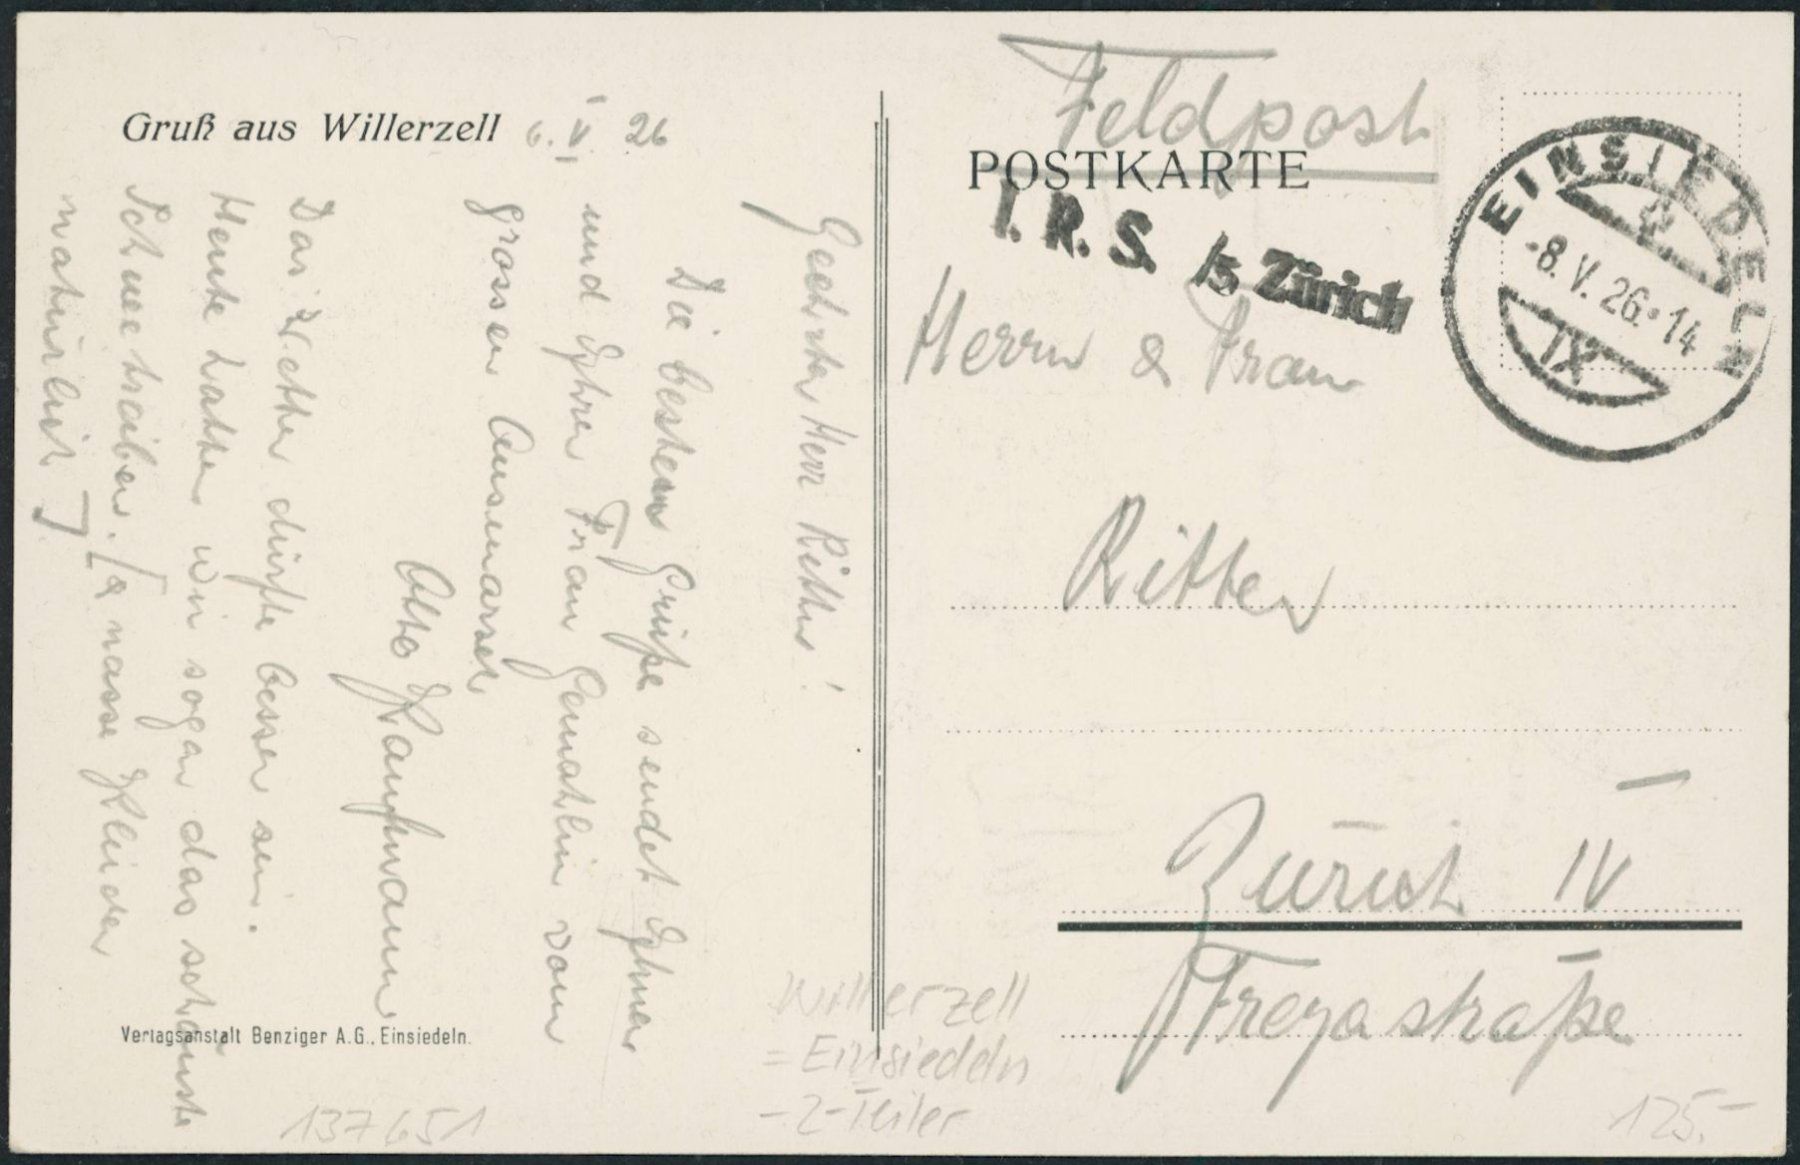 Gruß aus Willerzell 6. V. 26
Geehrter Herr Ritter!
Die besten Grüße sendet Ihnen
und Ihrer Frau Gemahlin vom
grossen Ausmarsch
Otto Kaufmann
Das Wetter dürfte besser sein.
Heute hatten wir sogar das schönste
Schneetreiben. [& nasse Kleider
natürlich]
Verlagsanstalt Benziger A.G., Einsiedeln.
137651
Feldpost
POSTKARTE
I. R. S. /5 Zürich
EINSIEDELN
-8. V. 26. 14
IX
Herrn & Frau
Ritter
Zürich IV
Freyastraße
Willerzell
= Einsiedeln
-2-Teiler
125.-